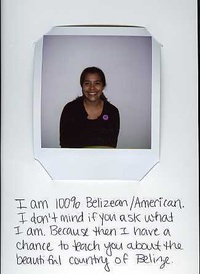 I am 100% Belizean/American.
I don't mind if you ask what
I am. Because then I have a
chance to teach you about the
beautiful country of Belize.